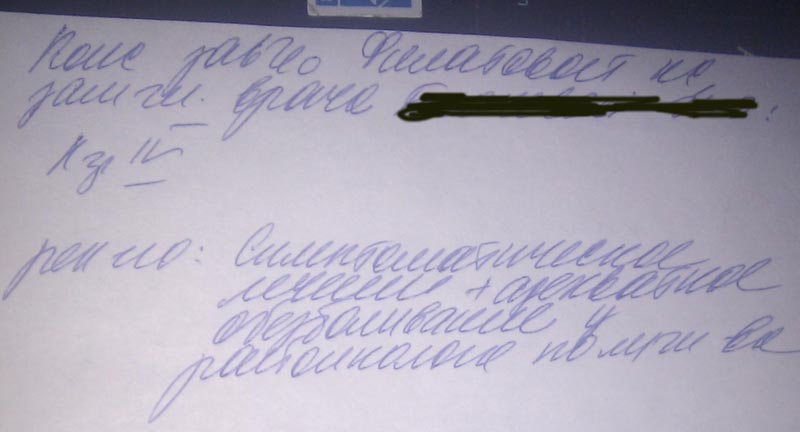 Конс зав ч/о Филатовой по
зам гл. врача
К гр IV
рек-но: Симптоматическое
лечение + адекватное
обезболивание у
районколога по м/ж